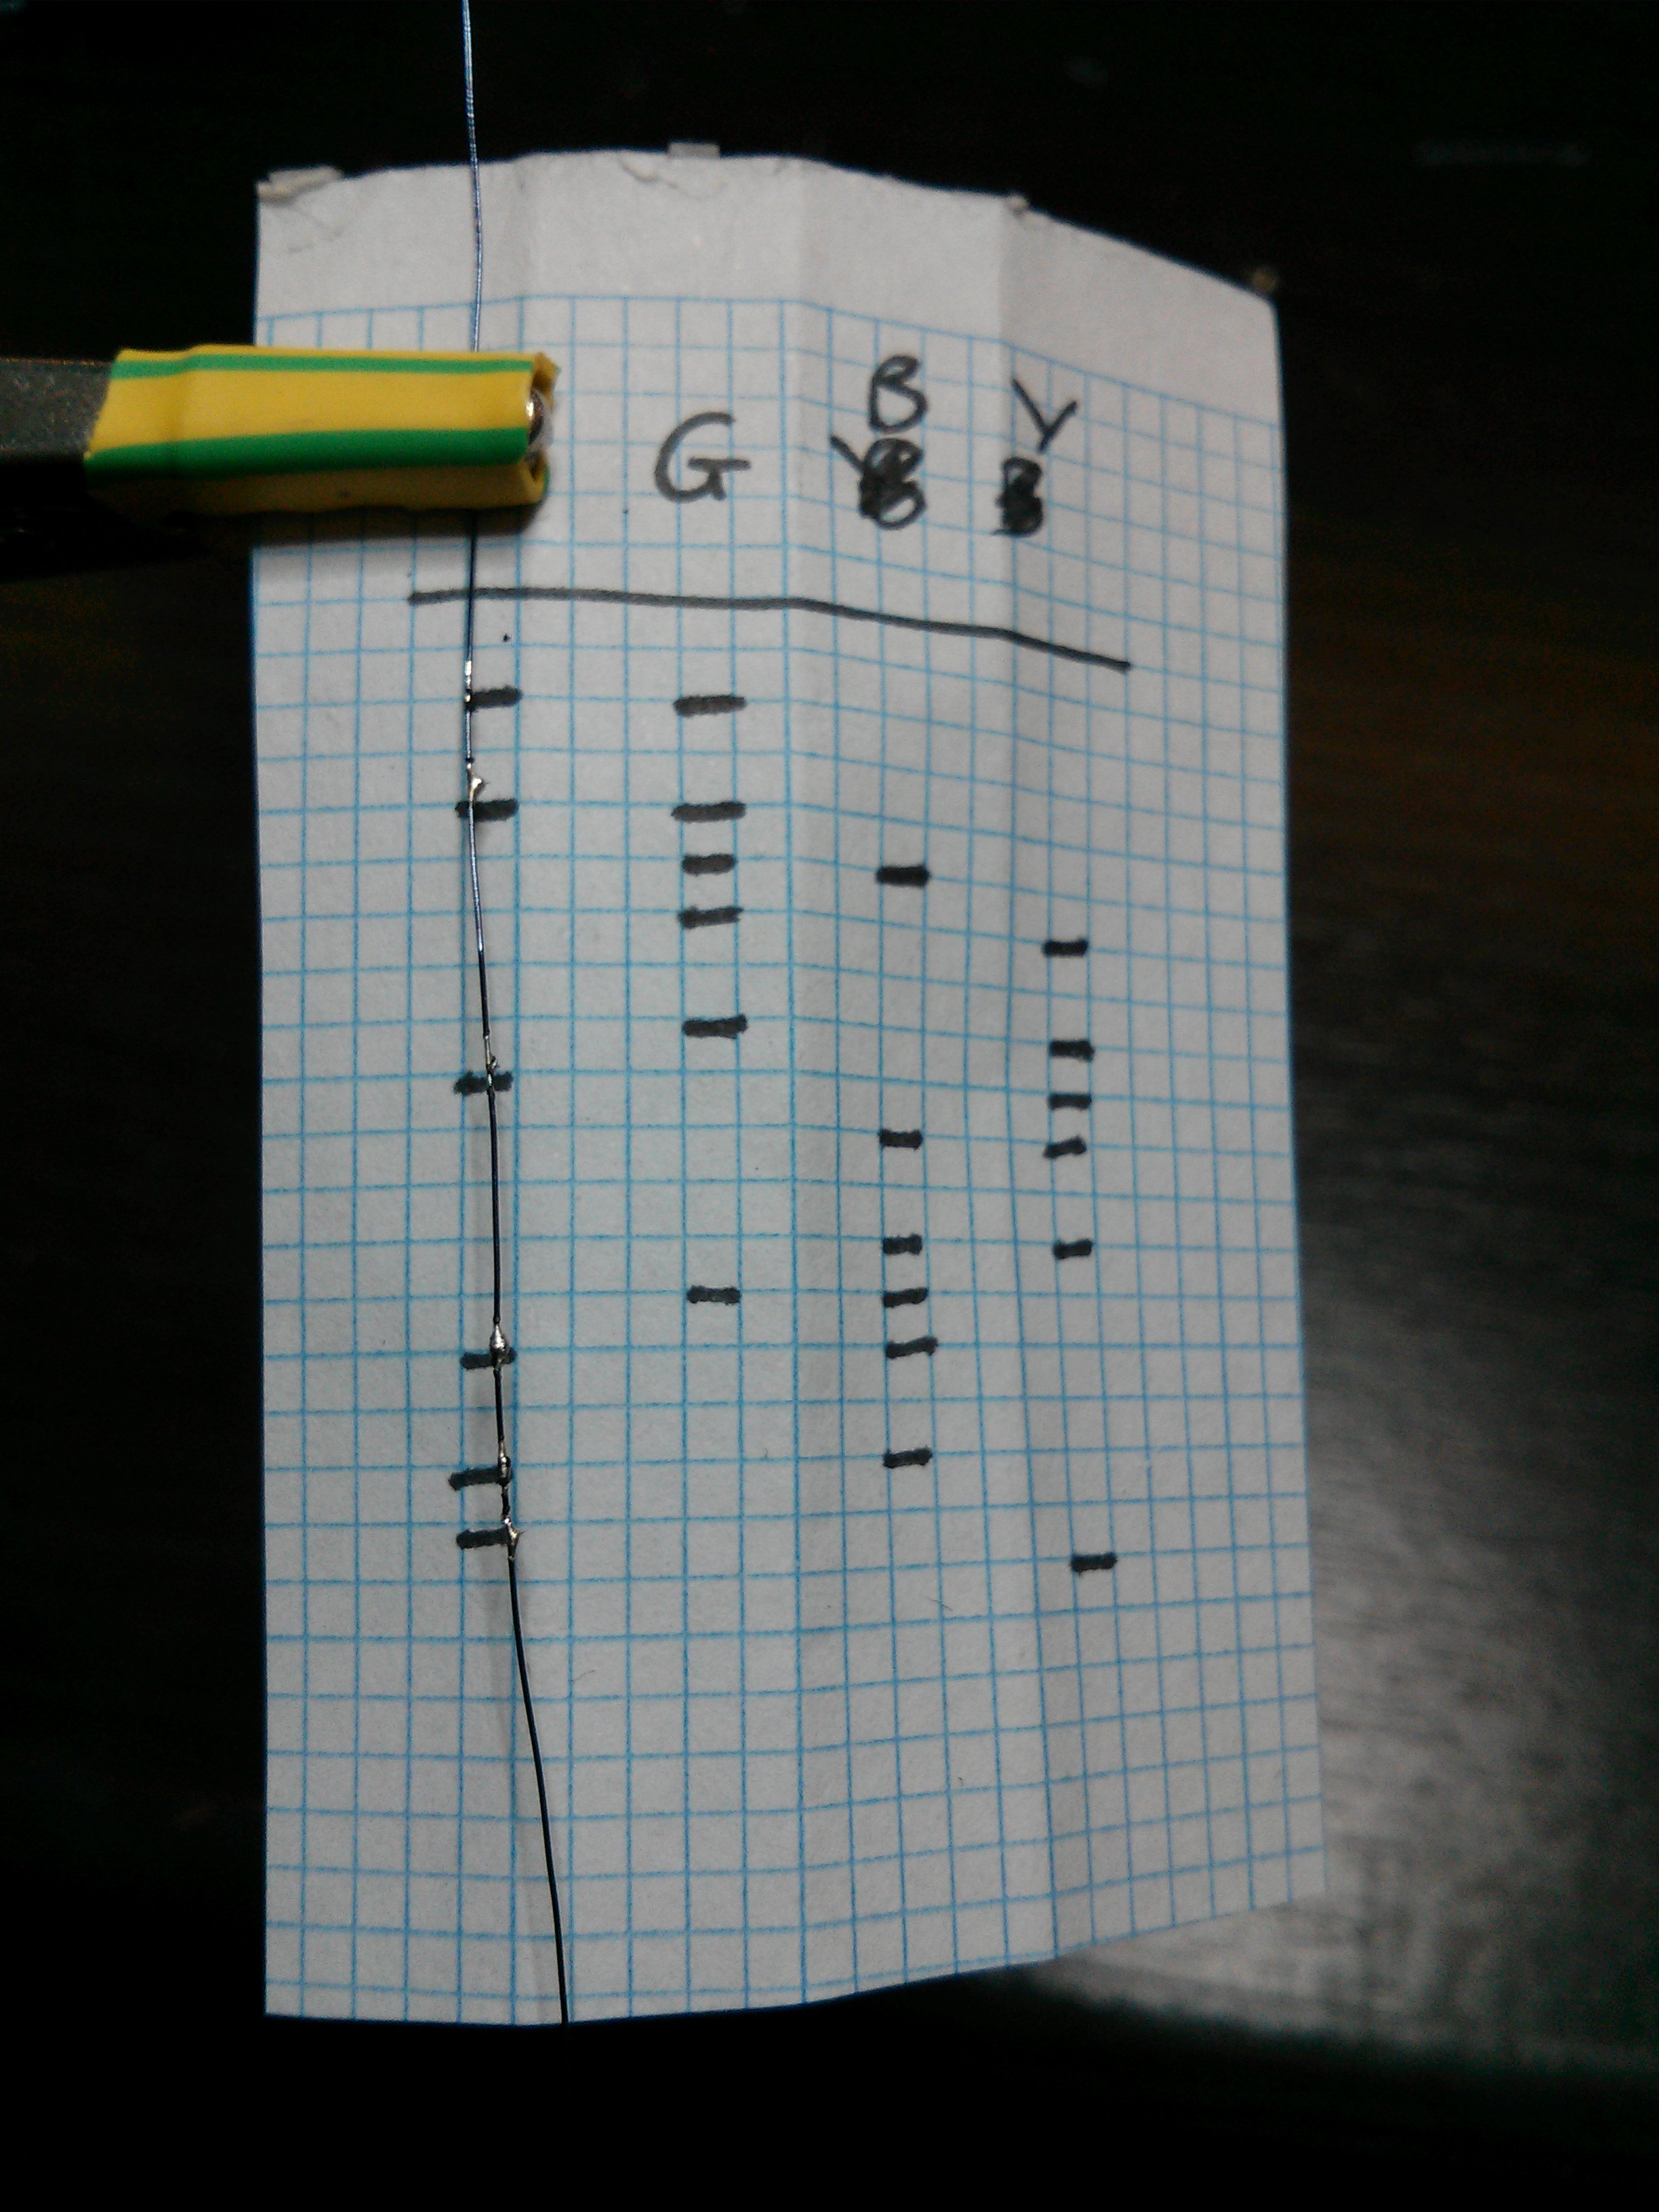 G B Y